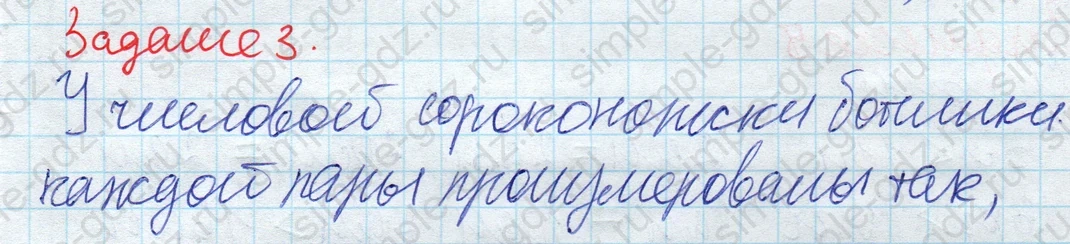 Задание 3.
У числовой сороконожки ботинки
каждой пары пронумерованы так,